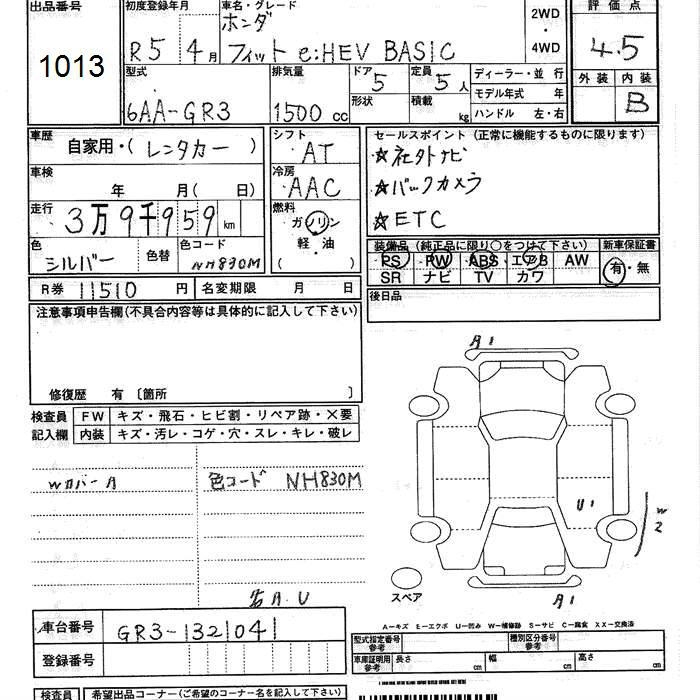 出品番号 初度登録年月 車名・グレード 2WD・4WD 評価点
1013 R5年 4月 ホンダ
フィット e:HEV BASIC 4.5
型式 排気量 ドア 5 定員 5人 ディーラー・並行 外装 内装
6AA-GR3 1500 cc 形状 積載 kg モデル年式 年 B
ハンドル 左・右
車歴 自家用・(レンタカー) シフト AT セールスポイント (正常に機能するものに限ります)
☆社外ナビ
車検 年 月(日) 冷房 AAC ☆バックカメラ
走行 3万9千959 km 燃料 ガソリン ☆ETC
軽・油
( )
色 シルバー 色替 色コード NH830M
装備品 (純正品に限り○をつけて下さい) 新車保証書
PS PW ABS エアB AW 有・無
SR ナビ TV カワ
R券 11510 円 名変期限 月 日 後日品
注意事項申告欄(不具合内容等は具体的に記入して下さい)
修復歴 有 〔箇所 〕
検査員記入欄 FW キズ・飛石・ヒビ割・リペア跡・×要
内装 キズ・汚レ・コゲ・穴・スレ・キレ・破レ
Wカバー 色コード NH830M
A1
U1
W2
A1
スペア
各A.U
A-キズ E-エクボ U-凹み W-補修跡 S-サビ C-腐食 XX-交換済
車台番号 GR3-1321041
登録番号
型式指定番号 参考 種別区分番号 参考
車庫証明用 参考 長さ cm 幅 cm 高さ cm
検査員 希望出品コーナー(ご希望のコーナー名を記入して下さい)